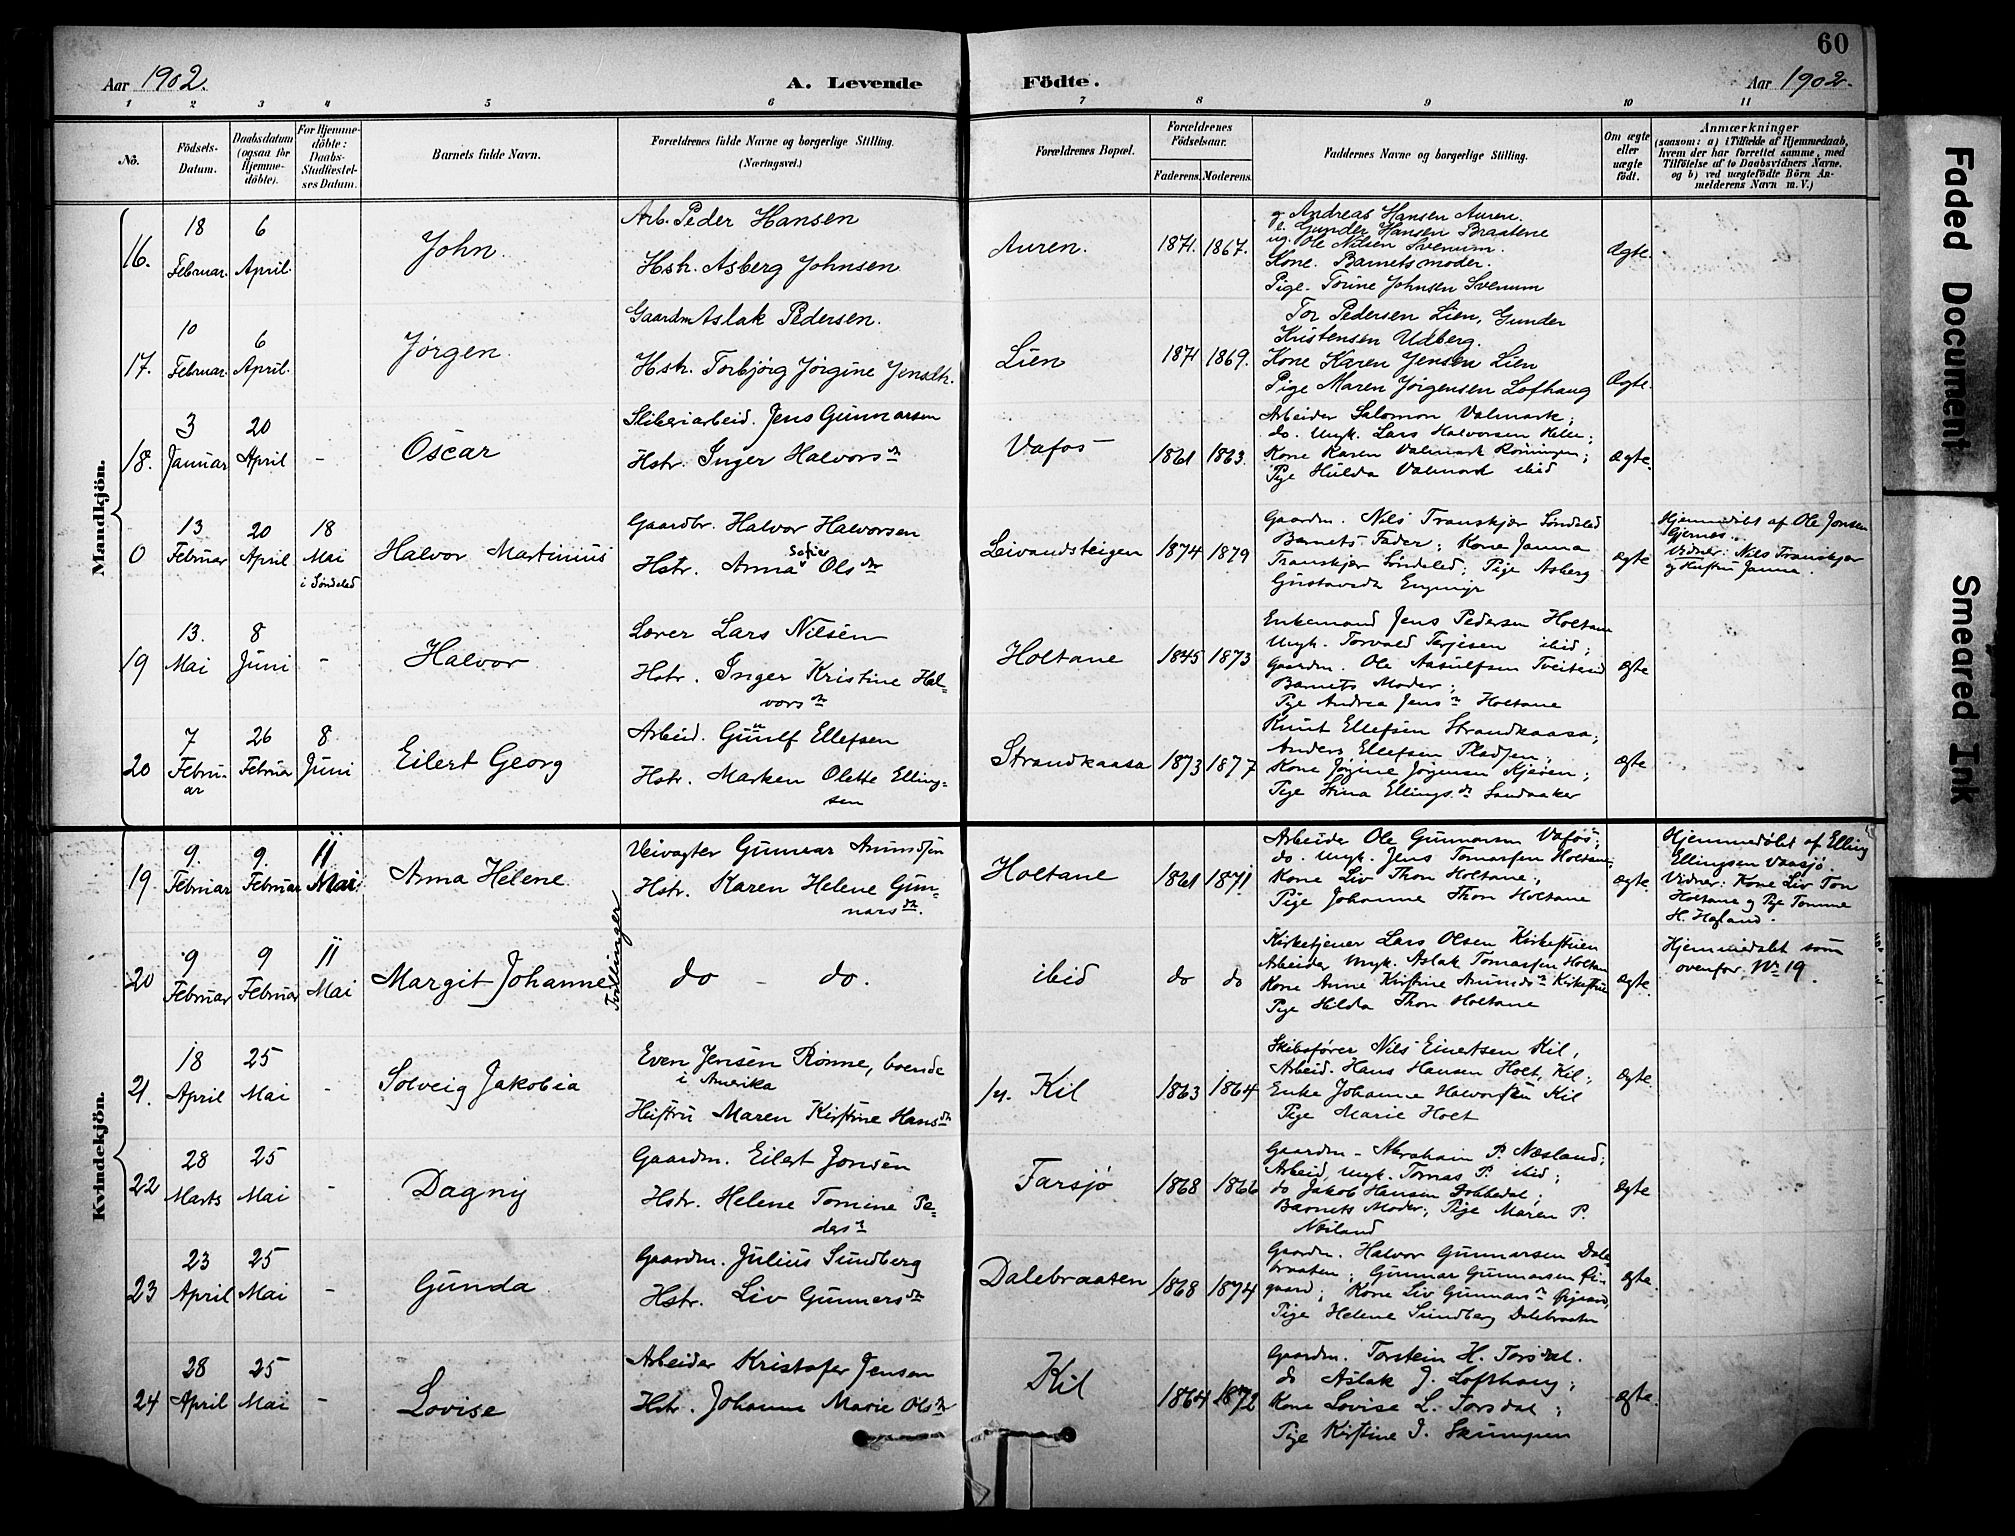 60
Aar 1902.
A. Levende Födte.
Aar 1902.
1 2 3 4 5 6 7 8 9 10 11
No.
Födsels-
Datum.
Daabsdatum
(ogsaa for
Hjemme-
döbte).
For Hjemme-
döbte:
Daabs-
Stadfæstel-
ses Datum.
Barnets fulde Navn.
Forældrenes fulde Navne og borgerlige Stilling.
(Næringsvei.)
Forældrenes Bopæl.
Forældrenes
Födselsaar.
Faderens. Moderens.
Faddernes Navne og borgerlige Stilling.
Om ægte
eller
uægte
födt.
Anmærkninger
(saasom: a) i Tilfælde af Hjemmedaab,
hvem der har forrettet samme, med
Tilföielse af to Daabsvidners Navne.
og b) ved uægtefödte Börn An-
melderens Navn m. V.)
Mandkjön.
16.
18
Februar.
6
April.
John.
Arb. Peder Hansen
Hstr. Asberg Johnsen
Auren.
1871. 1867.
g. Andreas Hansen Auren.
Gunder Hansen Braatene
ug. Ole Nilsen Svenum.
Kone. Barnets moder.
Pige. Torine Johnsen Svenum
Ægte.
17.
10
Februar.
6
April.
Jørgen.
Gaardm Aslak Pedersen.
Hstr. Torbjørg Jørgine Jensdtr.
Lien
1871 1869.
Tor Pedersen Lien, Gunder
Kristensen Udberg.
Kone Karen Jensen Lien
Pige Maren Jørgensen Lofthaug
Ægte.
18.
3
Januar
20
April
-
Oscar
Sliberiarbeid. Jens Gunnarsen
Hstr. Inger Halvorsdr
Vafos
1861 1863.
Arbeider Salomon Valmark;
do. Ungk. Lars Halvorsen Helle;
Kone Karen Valmark Røningen;
Pige Hulda Valmark ibid
ægte.
0
13
Februar
20
April
18
Mai
i Søndeled
Halvor Martinius
Gaardbr. Halvor Halvorsen
Hstr. Anna Sofie Olsdtr
Leivandsteigen
1874 1879
Gaardm. Nils Transkjær Søndeled
Barnets Fader; Kone Janna
Transkjær Søndeled; Pige Asberg
Gustavsdr
ægte
Hjemmedøbt af Ole Jonsen
Gjernes.
Vidner: Nils Transkjær
og Hustru Janna.
19
13.
Mai
8
Juni
-
Halvor
Lærer Lars Nilsen
Hstr. Inger Kristine Hal-
vorsdr
Holtane
1845 1873
Enkemand Jens Pedersen Holtane
Ungk. Torvald Terjesen ibid;
Gaardm. Ole Aasulfsen Tveitereid
Barnets Moder;
Pige Andrea Jensdr Holtane
ægte
20
7
Febru-
ar
26
Februar
8
Juni
Eilert Georg
Arbeid. Gunulf Ellefsen
Hstr. Marken Olette Elling-
sen
Strandkaasa
1873 1877
Knut Ellefsen Strandkaasa;
Anders Ellefsen Pladsen;
Kone Jørgine Jørgensen Kjeøen;
Pige Stina Ellingsdr Sandaaker
ægte
Kvindekjön.
19.
9.
Februar
9.
Februar
11
Mai
Anna Helene
Veivogter Gunnar Amundsen
Hstr. Karen Helene Gun-
narsdr.
Holtane
1861 1871
Arbeider Ole Gunnarsen Vafos;
do. Ungk. Jens Tomassen Holtane
Kone Liv Thon Holtane;
Pige Johanne Thon Holtane
ægte.
Hjemmedøbt af Elling
Ellingsen Vaasjø.
Vidner: Kone Liv Ton
Holtane og Pige Tomine
H. Hegland.
20
9
Februar
9
Februar
11
Mai
Margit Johanne
Tvillinger
do - do.
ibid
do do
Kirketjener Lars Olsen Kirkestuen
Arbeider Ungk. Aslak Tomassen Holtan
Kone Anne Kirstine Amundsdr Kirkestue
Pige Hilda Thon Holtane
ægte.
Hjemmedøbt som
ovenfor No 19.
21.
18
April
25
Mai
-
Solveig Jakobia
Even Jensen Rønne, boende
i Amerika
Hustru Maren Kirstine Hansdr
Kil
1863 1864
Skibsfører Nils Einertsen Kil,
Arbeid. Hans Hansen Holt, Kil;
Enke Johanne Halvorsen Kil
Pige Marie Holt
ægte.
22
28
Marts
25
Mai
-
Dagny
Gaardm. Eilert Jonsen
Hstr. Helene Tomine Pe-
dersdr
Farsjø
1868 1866
Gaardm - Abraham P. Næsland;
Arbeid, Ungk. Tomas P. ibid;
do Jakob Hansen Dobbedal;
Barnets Moder; Pige Maren P.
Næsland
ægte
23
23
April
25
Mai
-
Gunda
Gaardm. Julius Sundberg
Hstr. Liv Gunnarsdr
Dalebraaten
1868 1874
Gaardm. Halvor Gunnarsen Dale-
braaten; Gunnar Gunnarsen Øi-
gaard; Kone Liv Gunnarsdr Øigaard,
Pige Helene Sundberg Dalebraaten
ægte.
24
28
April
25
Mai
-
Lovise
Arbeider Kristofer Jensen
Hstr. Johanne Marie Olsdr
Kil
1864 1872
Gaardm. Torstein H. Torsdal.
do Aslak J. Lofthaug;
Kone Lovise L. Torsdal;
Pige Kirstine J. Skumpen
ægte.
Faded Document
Smeared Ink